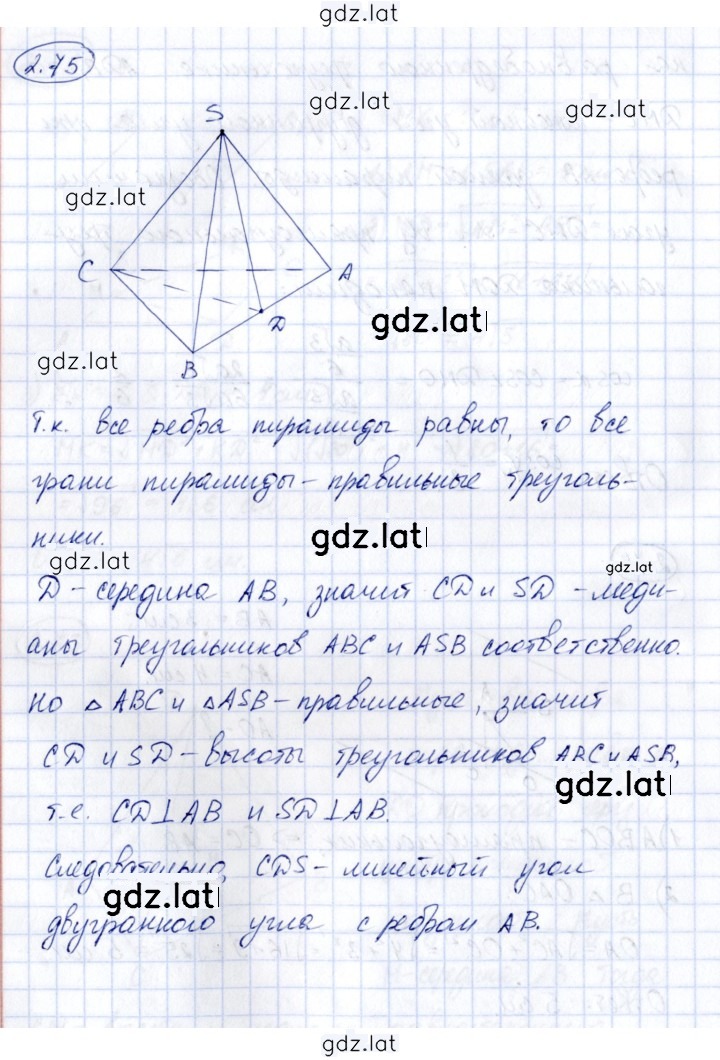 gdz.lat
2.75
gdz.lat
gdz.lat
S
gdz.lat
C
A
D
gdz.lat
gdz.lat
B
т.к. все ребра пирамиды равны, то все
грани пирамиды – правильные треуголь-
ники.
gdz.lat
gdz.lat
gdz.lat
D – середина AB, значит CD и SD – меди-
аны треугольников ABC и ASB соответственно.
gdz.lat
Но △ABC и △ASB – правильные, значит
CD и SD – высоты треугольников ABC и ASB,
gdz.lat
т.е. CD⊥AB и SD⊥AB.
Следовательно, CDS – линейный угол
gdz.lat
двугранного угла с ребром AB.
gdz.lat